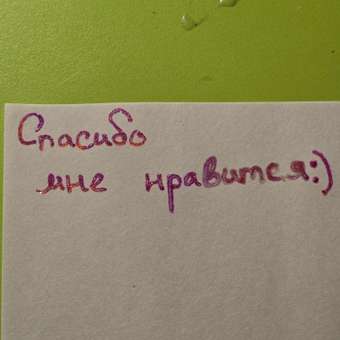 Спасибо
мне нравится:)